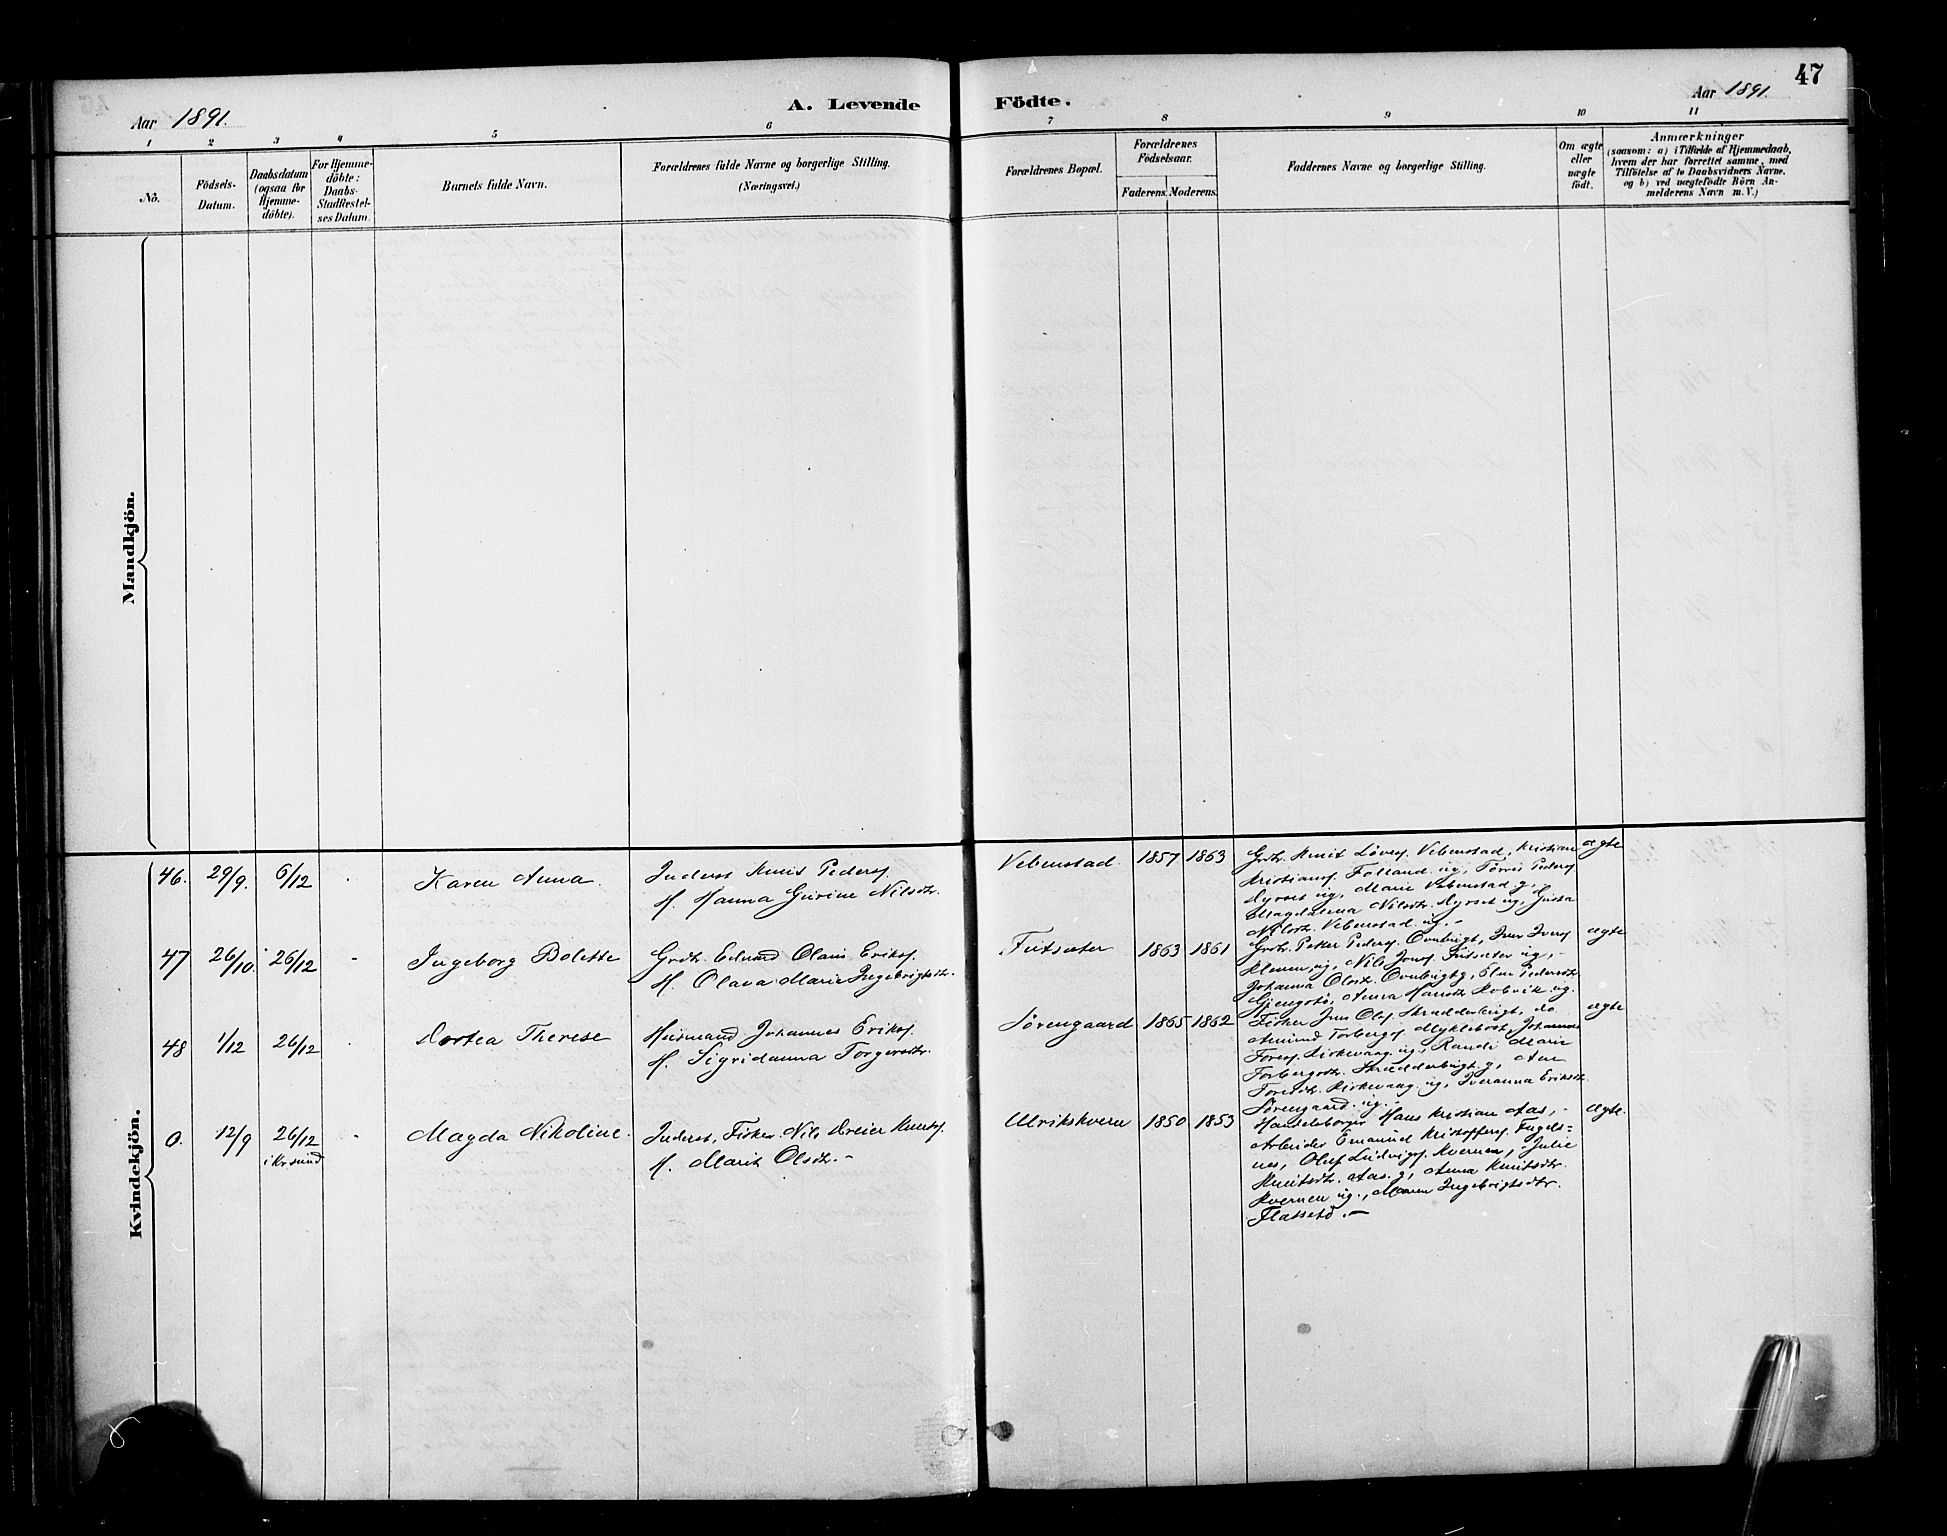 47
Aar 1891.
A. Levende Födte.
Aar 1891.
1 2 3 4 5 6 7 8 9 10 11
No.
Födsels-
Datum.
Daabsdatum
(ogsaa for
Hjemme-
döbte).
For Hjemme-
döbte:
Daabs-
Stadfæstel-
ses Datum.
Barnets fulde Navn.
Forældrenes fulde Navne og borgerlige Stilling.
(Næringsvei.)
Forældrenes Bopæl.
Forældrenes
Födselsaar.
Faderens. Moderens.
Faddernes Navne og borgerlige Stilling.
Om ægte
eller
uægte
födt.
Anmærkninger
(saasom: a) i Tilfælde af Hjemmedaab,
hvem der har forrettet samme, med
Tilföielse af to Daabsvidners Navne.
og b) ved uægtefödte Börn An-
melderens Navn m.V.)
Mandkjön.
Kvindekjön.
46. 29/9. 6/12 Karen Anna.
Inderst Knut Peders.
H. Hanna Gurine Nilsdtr.
Vebenstad. 1857 1863
Grdr. Knut Lövs. Vebenstad, Kristian
Kristians. Folland ug, Torris Peders
Dyrset ug, Marie Vebenstad g,
Magdalena Nilsdtr. Dyrset ug, Gusta
Nilsdtr. Vebenstad ug.-
ægte
47 26/10. 26/12 - Ingeborg Bolette
Grdr. Edvard Olaus Eriks.
H. Olava Marie Ingebrigtsdtr.
Futsæter 1863 1861
Grdr. Petter Peders. Ovenbrigt, Iver Ivers
ug, Nils Jons. Futsæter ug,-
Johanna Olsdr. g, Elen Pedersdtr
Anna Hansdtr ug.
ægte
48 1/12 26/12 Dortea Therese
Husmand Johannes Eriks.
H. Sigridanna Torgersdtr.
Sörengaard 1865 1862
Fisker Jens Ols. do
Amund Torbergs Myklebost, Johannes
Tores. Kirkevaag ug, Randi Marie
Torbergsdtr. g, Ane
Toresdtr. Kirkevaag ug, Iveranna Eriksdtr.
Sörengaard. ug.-
ægte
0. 12/9 26/12 - Magda Nikoline.
i Kr.sund
Inderst, Fisker Nils Dreier Knuts.
H. Marit Olsdtr.-
Ulrikskvern 1850 1853
Handelsborger Hans Kristian Aas,-
Arbeider Emanuel Kristoffers. Fugels=
nes, Oluf Ludvigs. Kvernen, Julie
Knutsdtr. Aas. g, Anna Knutsdtr.
Kvernen ug., Maren Ingebrigtsdtr.
Flatsetö.-
ægte.